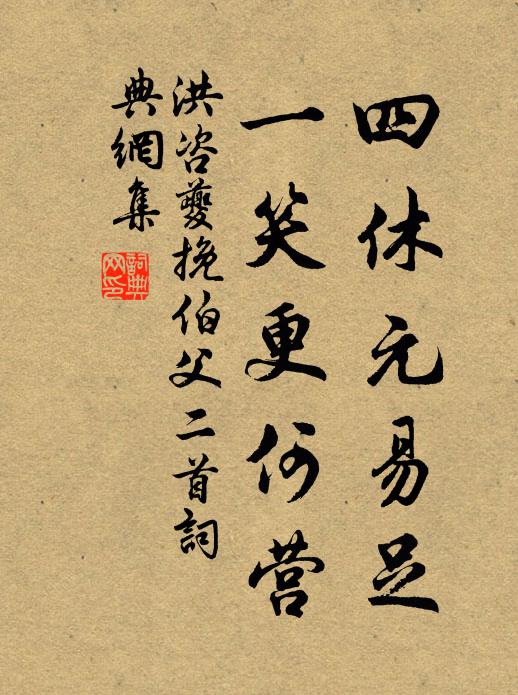 四休元易足
一笑更何营
洪咨夔挽伯父二首詞
典網集
詞典
网印